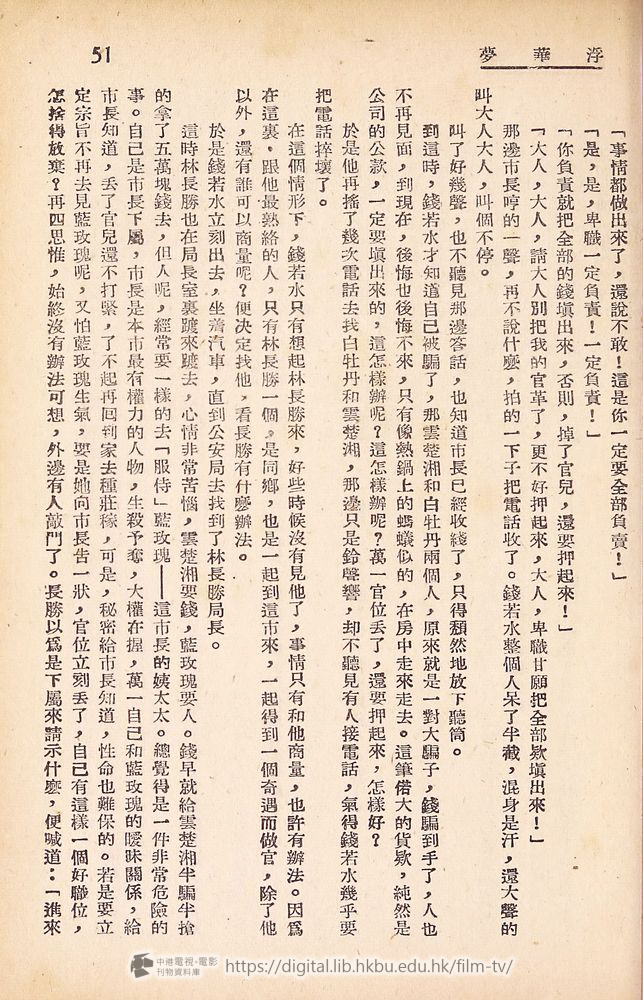 浮華夢
51
「事情都做出來了，還說不敢！這是你一定要全部負責！」
「是，是，卑職一定負責！一定負責！」
「你負責就把全部的錢塡出來，否則，掉了官兒，還要押起來！」
「大人，大人，請大人別把我的官革了，更不好押起來，大人，卑職甘願把全部欵塡出來！」
那邊市長哼的一聲，再不說什麼，拍的一下子把電話收了。錢若水整個人呆了半截，混身是汗，還大聲的
叫大人大人，叫個不停。
叫了好幾聲，也不聽見那邊答話，也知道市長已經收綫了，只得頹然地放下聽筒。
到這時，錢若水才知道自己被騙了，那雲楚湘和白牡丹兩個人，原來就是一對大騙子，錢騙到手了，人也
不再見面，到現在，後悔也後悔不來，只有像熱鍋上的螞蟻似的，在房中走來走去。這筆偌大的貨欵，純然是
公司的公款，一定要塡出來的，這怎樣辦呢？這怎樣辦呢？萬一官位丢了，還要押起來，怎樣好？
於是他再搖了幾次電話去找白牡丹和雲楚湘，那邊只是鈴聲響，却不聽見有人接電話，氣得錢若水幾乎要
把電話摔壞了。
在這個情形下，錢若水只有想起林長勝來，好些時候沒有見他了，事情只有和他商量，也許有辦法。因爲
在這裏，跟他最熟絡的人，只有林長勝一個。是同鄉，也是一起到這市來，一起得到一個奇遇而做官，除了他
以外，還有誰可以商量呢？便决定找他，看長勝有什麼辦法。
於是錢若水立刻出去，坐着汽車，直到公安局去找到了林長勝局長。
這時林長勝也在局長室裏踱來踱去，心情非常苦惱，雲楚湘要錢，藍玫瑰要人。錢早就給雲楚湘半騙半搶
的拿了五萬塊錢去，但人呢，經常要一樣的去「服侍」藍玫瑰——這市長的姨太太。總覺得是一件非常危險的
事。自己是市長下屬，市長是本市最有權力的人物，生殺予奪，大權在握，萬一自己和藍玫瑰的曖昧關係，給
市長知道，丢了官兒還不打緊，了不起再回到家去種莊稼，可是，秘密給市長知道，性命也難保的。若是要立
定宗旨不再去見藍玫瑰呢，又怕藍玫瑰生氣，要是她向市長吿一狀，官位立刻丢了，自己有這樣一個好職位，
怎捨得放棄？再四思惟，始終沒有辦法可想，外邊有人敲門了。長勝以爲是下屬來請示什麼，便喊道：「進來
中港電視·電影
刊物資料庫
https://digital.lib.hkbu.edu.hk/film-tv/